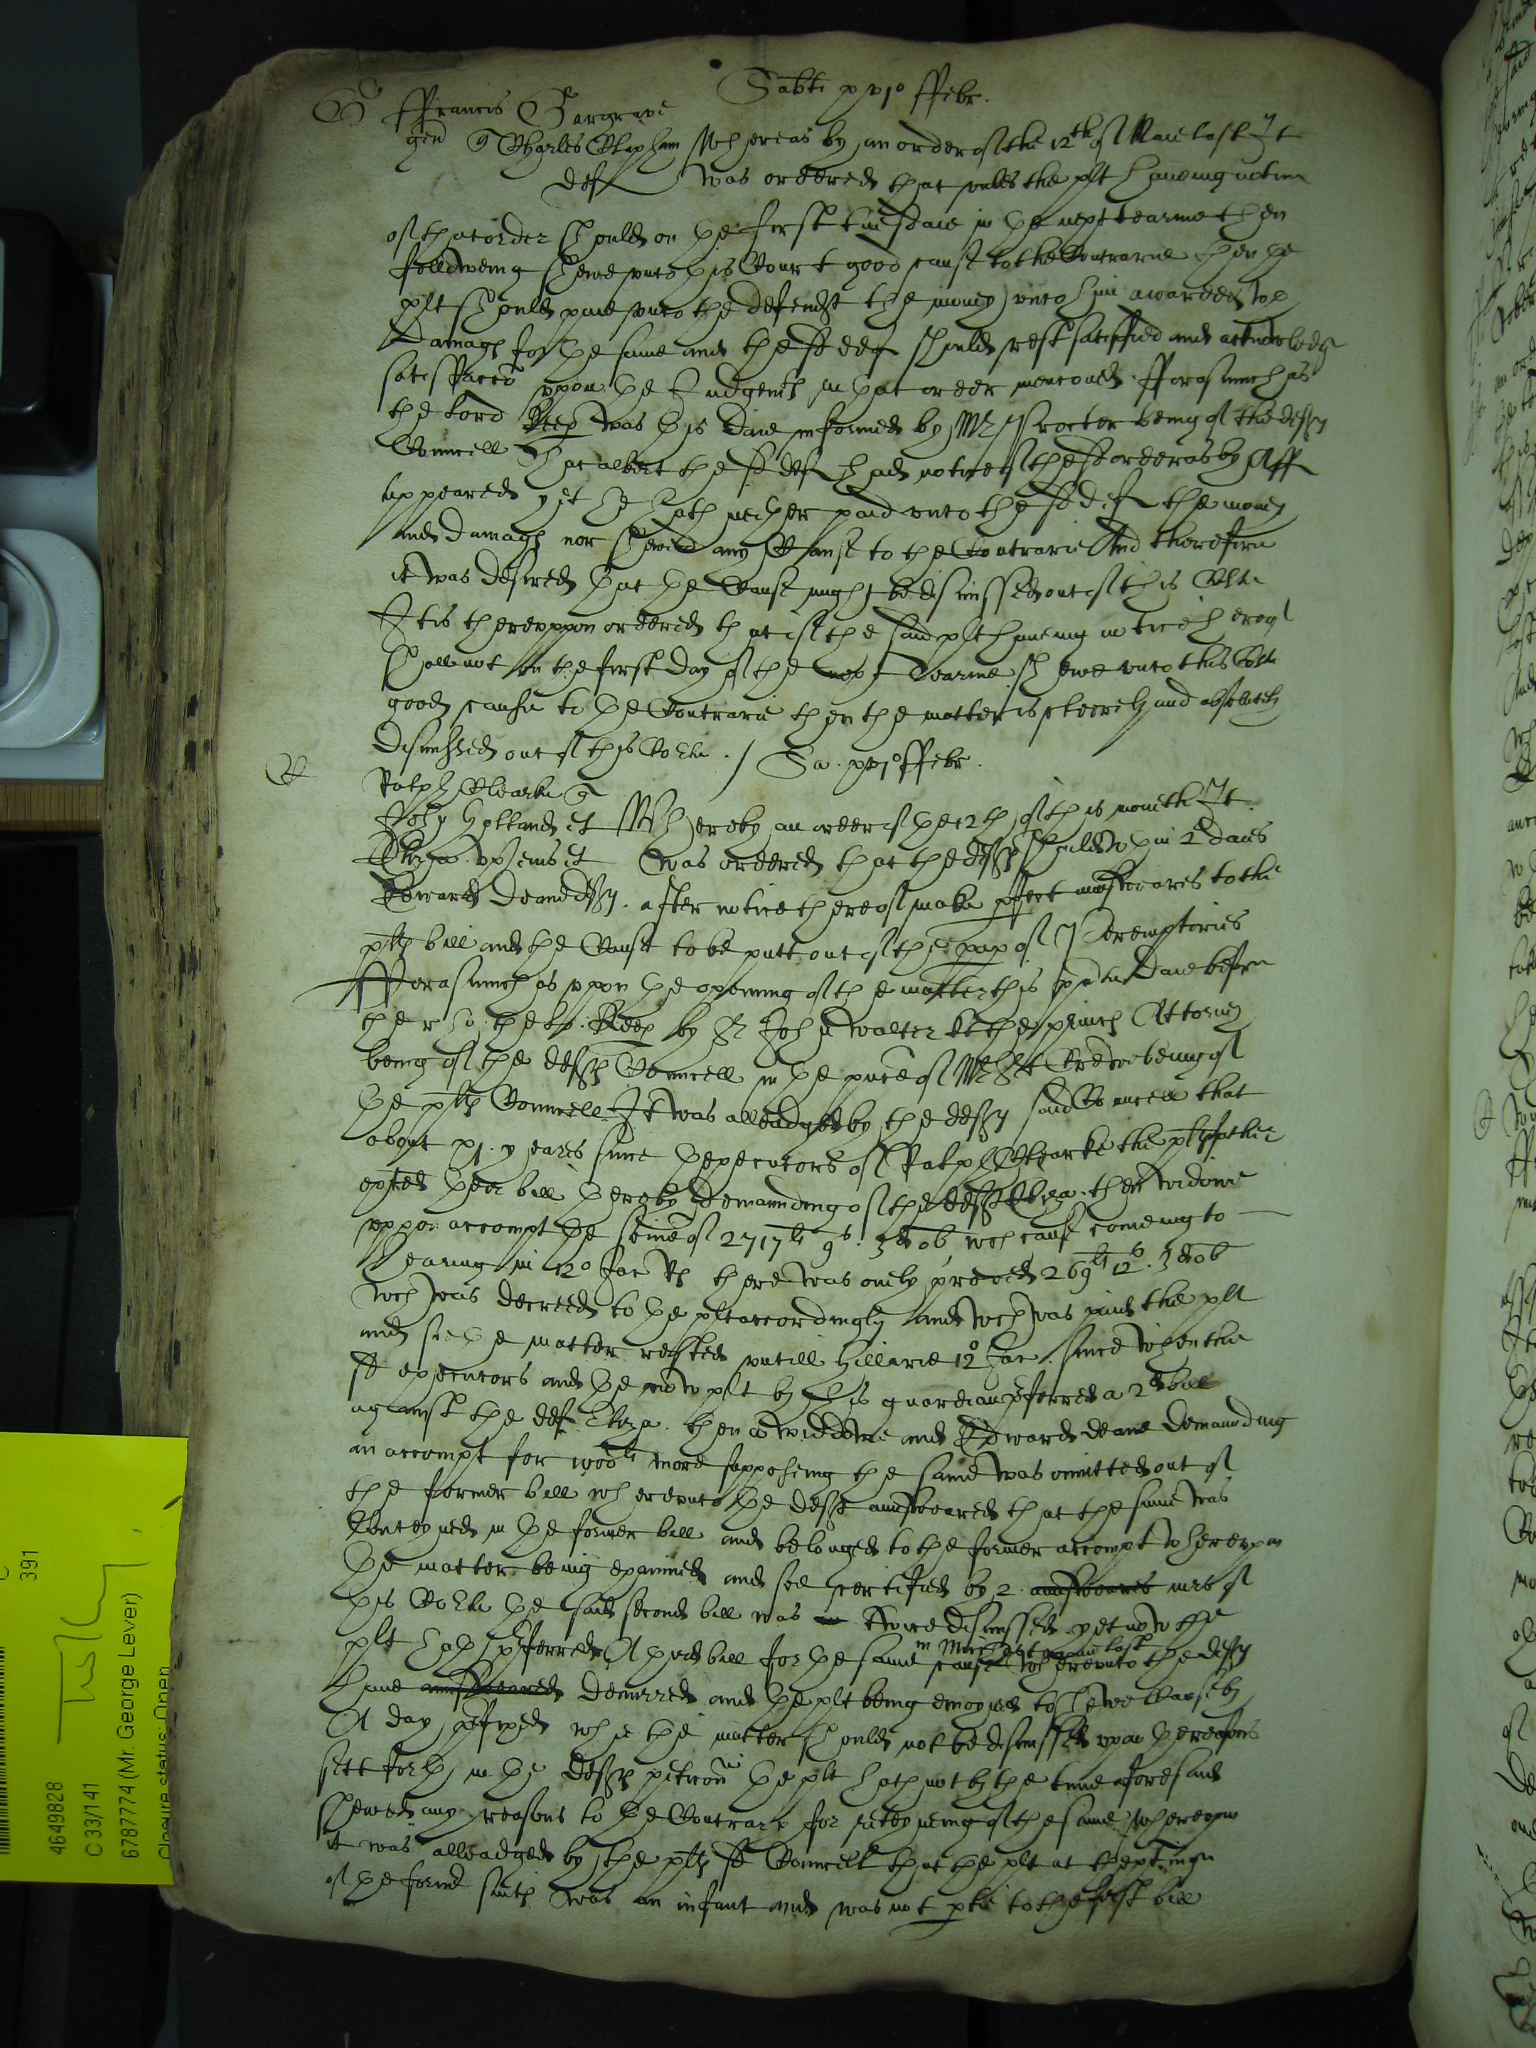 Sabti xxi° ffebr.
G ffrancis Gargrave
gen q Charles Clapham Whereas by an order of the 12th of Maie last It
def was ordered that unles the plt haveing notice
of that order should on the first tuesdaie in the next tearme then
followeing shewe unto this Court good cause to the Contrarie then the
plt should paie unto the defendt the money unto him awarded wth
damages for the same and the sd def should rest satisfied and acknowledg
satisfaccon upon the Judgemt in that order menconed. fforasmuch as
the Lord Keep was this daie informed by Mr Procter being of the defts
Councell That albeit the sd def hath notice of the sd order as by Aff
appeared yet he hath neither paid unto the sd def the money
and damages nor shewed any Cause to the Contrarie And therefore
it was desired that the Cause might be dismissed out of this Cte
It is thereuppon ordered that if the said plt haveing notice hereof
shall not on the first day of the next Tearme shewe unto this Cte
good cause to the Contrarie then the matter is cleerely and absolutely
dismissed out of this Corte ./ Sa. xxi° ffebr.
C
Ralph Clearke q
John Holland et Whereby an order of the 12th of this moneth It
Eliza. ux eius et was ordered that the defts should wthin 2 daies
Edward Deane defts. after notice thereof make pfect answeares to the
plts bill and the Cause to be putt out of the pap of Peremptories
fforasmuch as upon the opening of the matter this pnte daie before
the r ho: the Lo: Keep by Sr John Walter kt the princes Attorney
being of the defts Councell in the pnce of Mr Srt Crewe being of
the plts Councell It was alleadged by the defts said Councell that
about xi. yeares since the executors of Ralph Clearke the plts father
exhted their bill thereby demaunding of the deft Eliza. then widowe
uppon accompt the some of 2717li 9s. 3d ob wch cause comeing to
hearing in 12° Jac Rs there was onely proved 269li 12s. 3d ob
wch was decreed to the plt accordingly and wch was paid the plt
and soe the matter rested untill Hillarie 12° Jac. since when the
sd executors and the now plt by his guardian pferred a 2d bill
against the def Eliza. then a widdowe and Edward deane demaunding
an accompt for 1000li more supposeing the same was omitted out of
the former bill whereunto the defts answeared that the same was
Conteyned in the former bill and belonged to the former accompt whereupon
the matter being examined and soe certified by 2. answeares mrs of
this Corte the said second bill was twice dismissed yet now the
plt hath pferred A third bill for the same cause in Michas tearme last whereunto the defts
have answeared demurred and the plt being enioyned to shewe Cause by
A day prefixed whie the matter should not be dismissed upon the reasons
sett forth in the defts peticon the plt hath not by the time aforesaid
shewed any reasons to the Contrary for reteyneing of the same whereupon
it was alleadged by the plts sd Councell that the plt at thexptinge
of the former suits was an infant and was not ptie to the first bill
391
4649828
C 33/141
6787774 (Mr. George Lever)
Closure status: Open